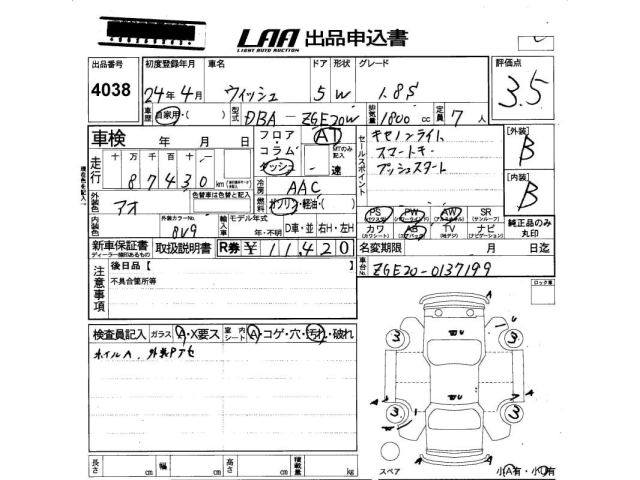 LAA 出品申込書
LIGHT AUTO AUCTION
出品番号 初度登録年月 車名 ドア 形状 グレード 評価点
4038 24年4月 ウィッシュ 5 W 1.8S 3.5
車歴 自家用・( ) 型式 DBA-ZGE20W 排気量 1800 cc 定員 7 人
車検 年 月 日
フロア・コラム・ダッシュ AT MTのみ記入 速
セールスポイント
キセノンライト
スマートキー
プッシュスタート
[外装] B
[内装] B
走行 十 万 千 百 十 一
87430 km
冷房 AAC
燃料 ガソリン・軽油・( )
外装色 アオ 色替車は色替と記入
内装色 外装カラーNo. 8V9
輸入車 モデル年式 年・不明 D車・並 右H・左H
PS PW AW SR
(サンルーフ)
カワ AB TV ナビ
(ナビゲーション)
純正品のみ丸印
新車保証書 取扱説明書 R券 ¥ 11,420 名変期限 月 日迄
ディーラー捺印あるもの
車台No. ZGE20-0137199
注意事項 後日品【
不具合箇所等
ロック車
検査員記入 ガラス A・X要ス 室内シート A・コゲ・穴・汚れ・破れ
ホイルA、
3 3
3 3
長さ cm 幅 cm 高さ cm 積載量 kg
スペア 小A有・小U有